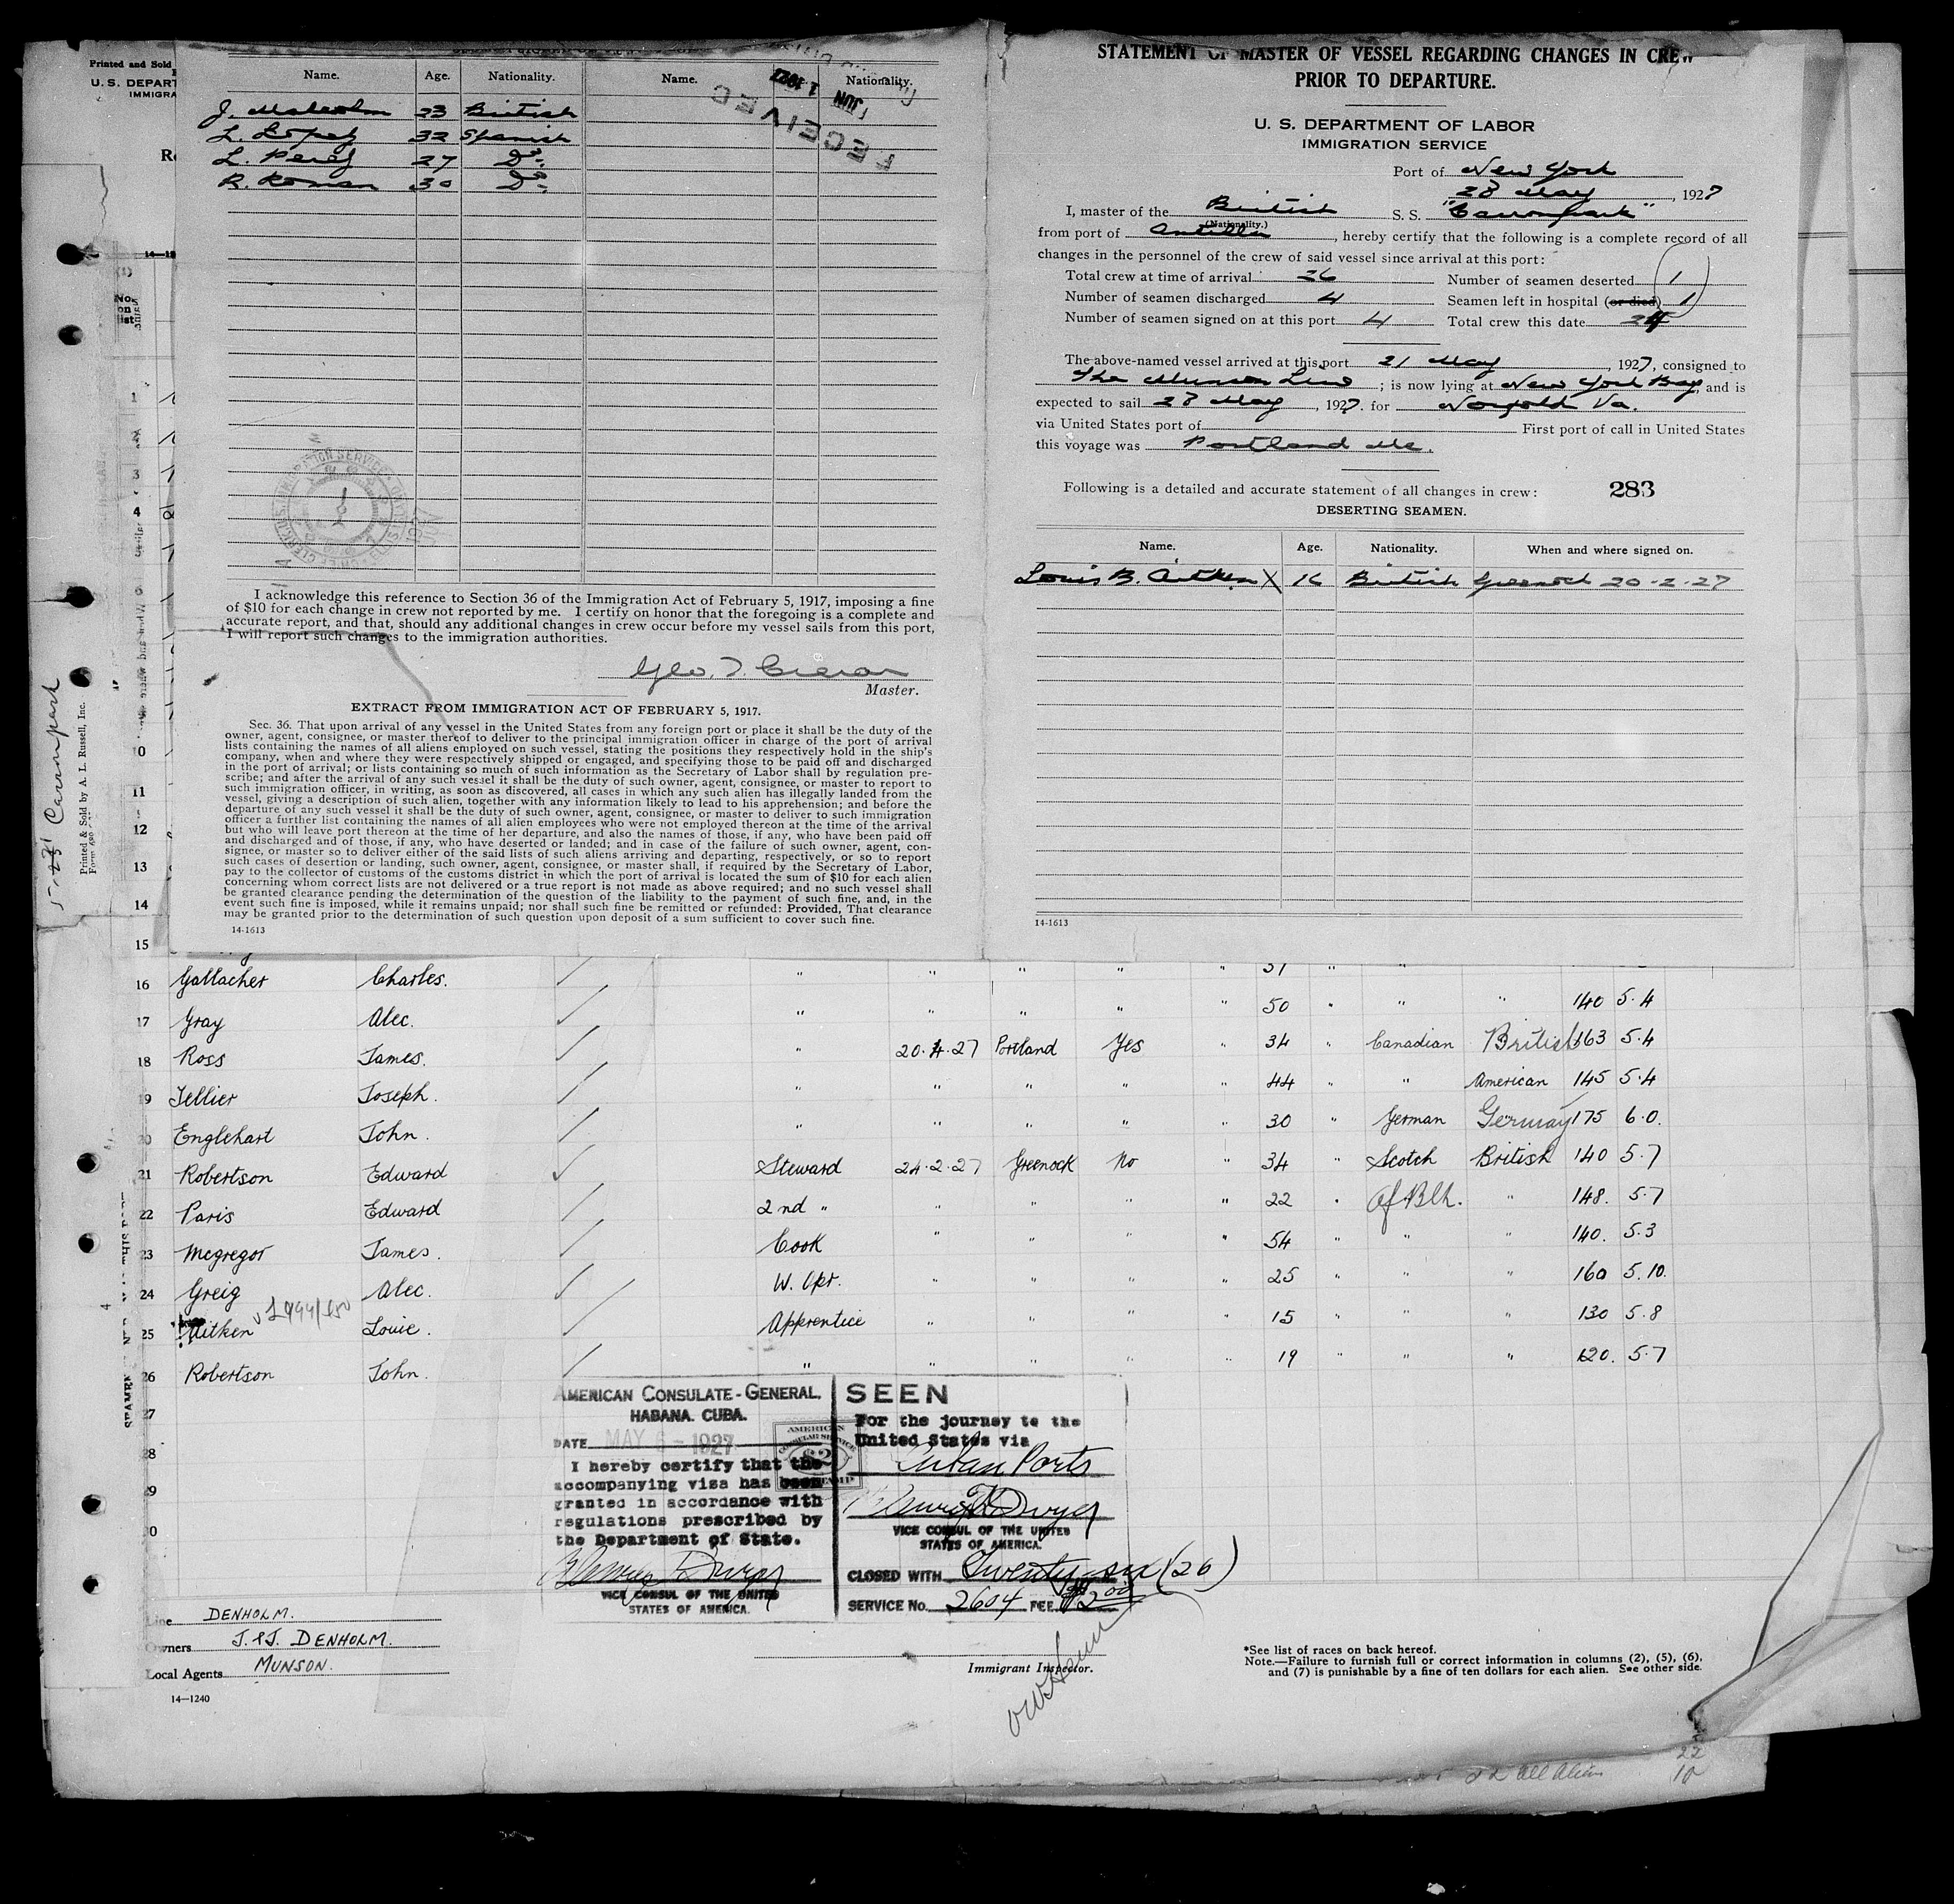 Printed and Sold
U. S. DEPART
IMMIGRA
Name. Age. Nationality. Name. Nationality.
J. Malcolm 23 British
L. Lopez 32 Spanish
L. Perez 27 Do.
R. Roman 30 Do.
JUN 1 1927
I acknowledge this reference to Section 36 of the Immigration Act of February 5, 1917, imposing a fine
of $10 for each change in crew not reported by me. I certify on honor that the foregoing is a complete and
accurate report, and that, should any additional changes in crew occur before my vessel sails from this port,
I will report such changes to the immigration authorities.
Master.
EXTRACT FROM IMMIGRATION ACT OF FEBRUARY 5, 1917.
Sec. 36. That upon arrival of any vessel in the United States from any foreign port or place it shall be the duty of the
owner, agent, consignee, or master thereof to deliver to the principal immigration officer in charge of the port of arrival
lists containing the names of all aliens employed on such vessel, stating the positions they respectively hold in the ship's
company, when and where they were respectively shipped or engaged, and specifying those to be paid off and discharged
in the port of arrival; or lists containing so much of such information as the Secretary of Labor shall by regulation pre-
scribe; and after the arrival of any such vessel it shall be the duty of such owner, agent, consignee, or master to report to
such immigration officer, in writing, as soon as discovered, all cases in which any such alien has illegally landed from the
vessel, giving a description of such alien, together with any information likely to lead to his apprehension; and before the
departure of any such vessel it shall be the duty of such owner, agent, consignee, or master to deliver to such immigration
officer a further list containing the names of all alien employees who were not employed thereon at the time of the arrival
but who will leave port thereon at the time of her departure, and also the names of those, if any, who have been paid off
and discharged and of those, if any, who have deserted or landed; and in case of the failure of such owner, agent, con-
signee, or master so to deliver either of the said lists of such aliens arriving and departing, respectively, or so to report
such cases of desertion or landing, such owner, agent, consignee, or master shall, if required by the Secretary of Labor,
pay to the collector of customs of the customs district in which the port of arrival is located the sum of $10 for each alien
concerning whom correct lists are not delivered or a true report is not made as above required; and no such vessel shall
be granted clearance pending the determination of the question of the liability to the payment of such fine, and, in the
event such fine is imposed, while it remains unpaid; nor shall such fine be remitted or refunded: Provided, That clearance
may be granted prior to the determination of such question upon deposit of a sum sufficient to cover such fine.
14-1613
STATEMENT OF MASTER OF VESSEL REGARDING CHANGES IN CREW
PRIOR TO DEPARTURE.
U. S. DEPARTMENT OF LABOR
IMMIGRATION SERVICE
Port of New York
28 May, 1927
I, master of the British S. S. "Carronpark"
(Nationality.)
from port of Antilla, hereby certify that the following is a complete record of all
changes in the personnel of the crew of said vessel since arrival at this port:
Total crew at time of arrival 26 Number of seamen deserted 1
Number of seamen discharged 4 Seamen left in hospital (or died) 1
Number of seamen signed on at this port 4 Total crew this date 24
The above-named vessel arrived at this port 21 May, 1927, consigned to
The Munson Line; is now lying at New York Bay, and is
expected to sail 28 May, 1927. for Norfolk Va.
via United States port of First port of call in United States
this voyage was Portland Me.
Following is a detailed and accurate statement of all changes in crew: 283
DESERTING SEAMEN.
Name. Age. Nationality. When and where signed on.
Louis B. Aitken X 16 British Greenock 20-2-27
14-1613
Carronpark
Printed & Sold by A. L. Russell, Inc.
No. on list
1
3
4
10
11
12
13
14
15
16 Gallacher Charles. " " " " " 31 " "
17 Gray Alec. " " " " " 50 " " " 140 5.4
18 Ross James. " 20.4.27 Portland Yes " 34 " Canadian British 163 5.4
19 Tellier Joseph. " " " " " 44 " " American 145 5.4
20 Englehart John. " " " " " 30 " German Germany 175 6.0.
21 Robertson Edward Steward 24.2.27 Greenock No " 34 " Scotch British 140 5.7
22 Paris Edward 2nd " " " " " 22 " Af Blk. " 148. 5.7
23 Mcgregor James. Cook " " " " 54 " " " 140. 5.3
24 Greig Alec. W. Opr. " " " " 25 " " " 160 5.10.
25 Aitken Louie. Apprentice " " " " 15 " " " 130 5.8
26 Robertson John. " " " " " 19 " " " 120. 5.7
27
28
29
30
AMERICAN CONSULATE-GENERAL.
HABANA. CUBA.
DATE MAY 6 - 1927
I hereby certify that the
accompanying visa has been
granted in accordance with
regulations prescribed by
the Department of State.
VICE CONSUL OF THE UNITED
STATES OF AMERICA.
SEEN
For the journey to the
United States via
Cuban Ports
VICE CONSUL OF THE UNITED
STATES OF AMERICA.
CLOSED WITH Twenty six (26)
SERVICE No. 2604 FEE $2.00
Line DENHOLM.
Owners J. & J. DENHOLM.
Local Agents MUNSON.
14-1240
Immigrant Inspector.
*See list of races on back hereof.
Note.—Failure to furnish full or correct information in columns (2), (5), (6),
and (7) is punishable by a fine of ten dollars for each alien. See other side.
22 All Aliens
22
10